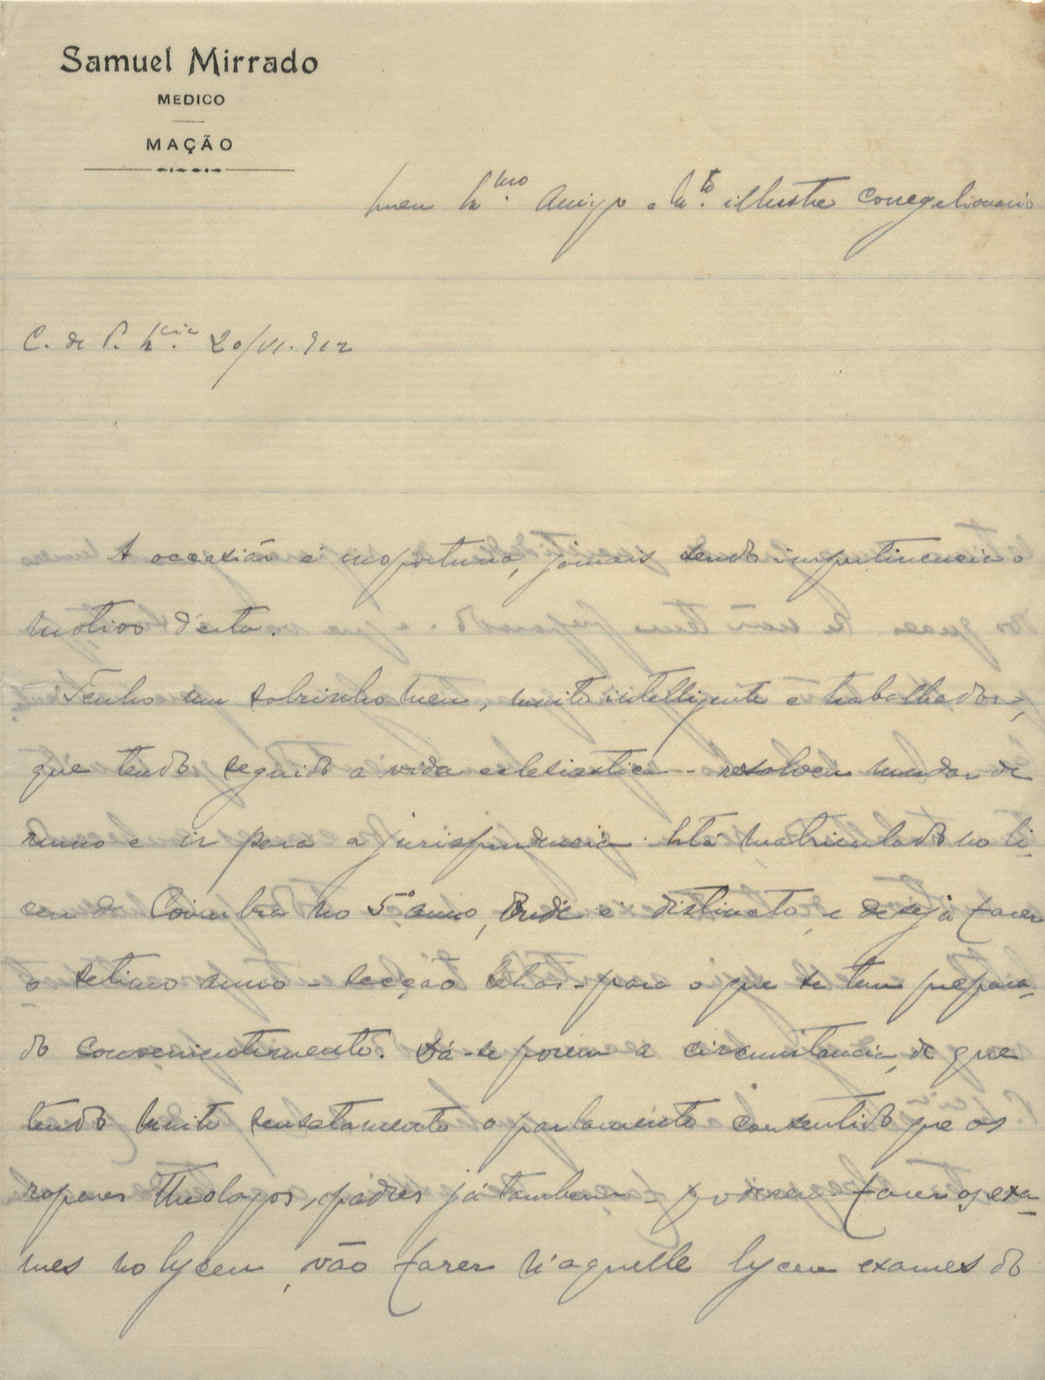 Samuel Mirrado
MEDICO
MAÇÃO
Meu amigo e illustre Correligionario
C. de P. 20/VI.912
A occasião é inoportuna, jámais sendo impertinencia o
motivo d'esta.
Tenho um sobrinho meu, muito intelligente e trabalhador,
que tendo seguido a vida eclesiastica - resolveu mudar de
rumo e ir para a jurisprudencia. Está matriculado no li-
ceu de Coimbra no 5º anno, onde é distincto, e deseja fazer
o setimo anno - secção letras - para o que se tem prepara-
do convenientemente. Dá-se porem a circumstancia, de que
tendo muito sensatamente o parlamento consentido que os
rapazes Theologos, padres já tambem podessem fazer os exa-
mes no lyceu, vão fazer n'aquelle lyceu exames do